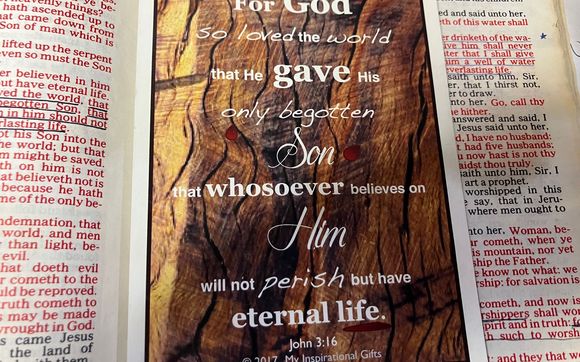 heavenly things?
hath ascended up
that came down from
Son of man which is
lifted up the serpent
even so must the Son
believeth in him
but have eternal life.
the world, that
begotten Son, that
in him should not
life.
not his Son into the
the world; but that
him might be saved.
on him is not
that believeth not is
because he hath
name of the only be-
that
world, and men
than light, be-
evil.
that doeth evil
cometh to the
should be reproved.
truth cometh to
may be made
wrought in God.
came Jesus
the land of
For God
so loved the world
that He gave His
only begotten
Son
that whosoever believes on
Him
will not perish but have
eternal life.
John 3:16
© 2017 My Inspirational Gifts
and said unto her,
of this water shall
drinketh of the wa-
give him shall never
that I shall give
him a well of water
everlasting life.
saith unto him, Sir,
that I thirst not,
to draw.
unto her, Go, call thy
hither.
answered and said, I
Jesus said unto her,
I have no husband:
had five husbands;
now hast is not thy
saidst thou truly.
saith unto him, Sir, I
art a prophet.
worshipped in this
say, that in Jeru-
where men ought to
unto her, Woman, be-
cometh, when ye
mountain, nor yet
the Father.
know not what: we
for salvation is
cometh, and now is
worshippers shall
spirit and in truth: for
such to
and they that